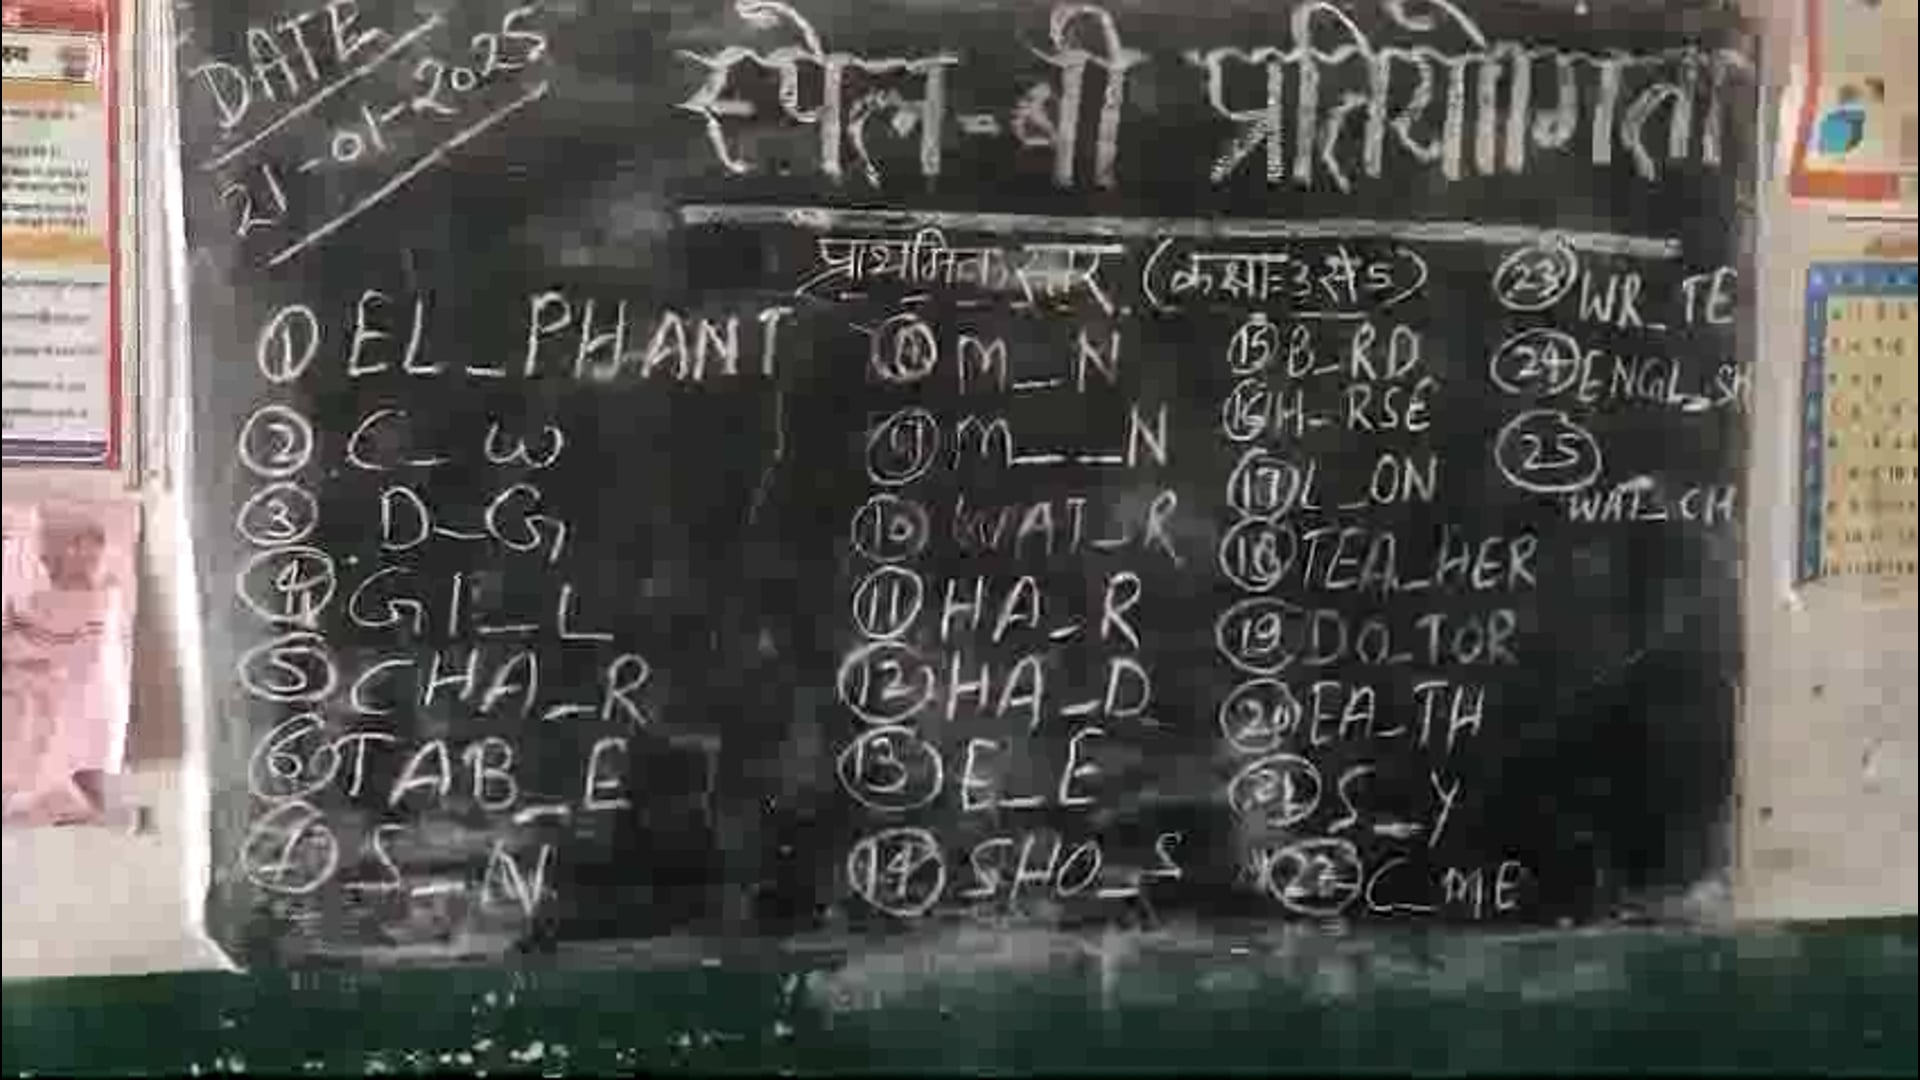 DATE
21-01-2025
स्पेल-बी प्रतियोगिता
प्राथमिक स्तर (कक्षा=3 से 5)
① EL_PHANT
② C_W
③ D_G
④ GI_L
⑤ CHA_R
⑥ TAB_E
⑦ S_N
⑧ M_N
⑨ M__N
⑩ WAT_R
⑪ HA_R
⑫ HA_D
⑬ E_E
⑭ SHO_S
⑮ B_RD
⑯ H_RSE
⑰ L_ON
⑱ TEA_HER
⑲ DO_TOR
⑳ EA_TH
㉑ S_Y
㉒ C_ME
㉓ WR_TE
㉔ ENGL_SH
㉕
WAT_CH